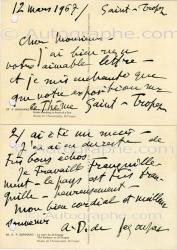 12 mars 1967/ Saint-Tropez
Cher Monsieur
J'ai bien reçu
votre aimable lettre -
et je suis enchanté que
que votre exposition sur
le Thème Saint-Tropez
2/ ai été un succès -
J'ai ai eu directe de
très bons échos.
Je travaille tranquille-
ment - le pays est très tran-
quille heureusement -
mon bien cordial et meilleur
souvenir
A. D. de Segonzac